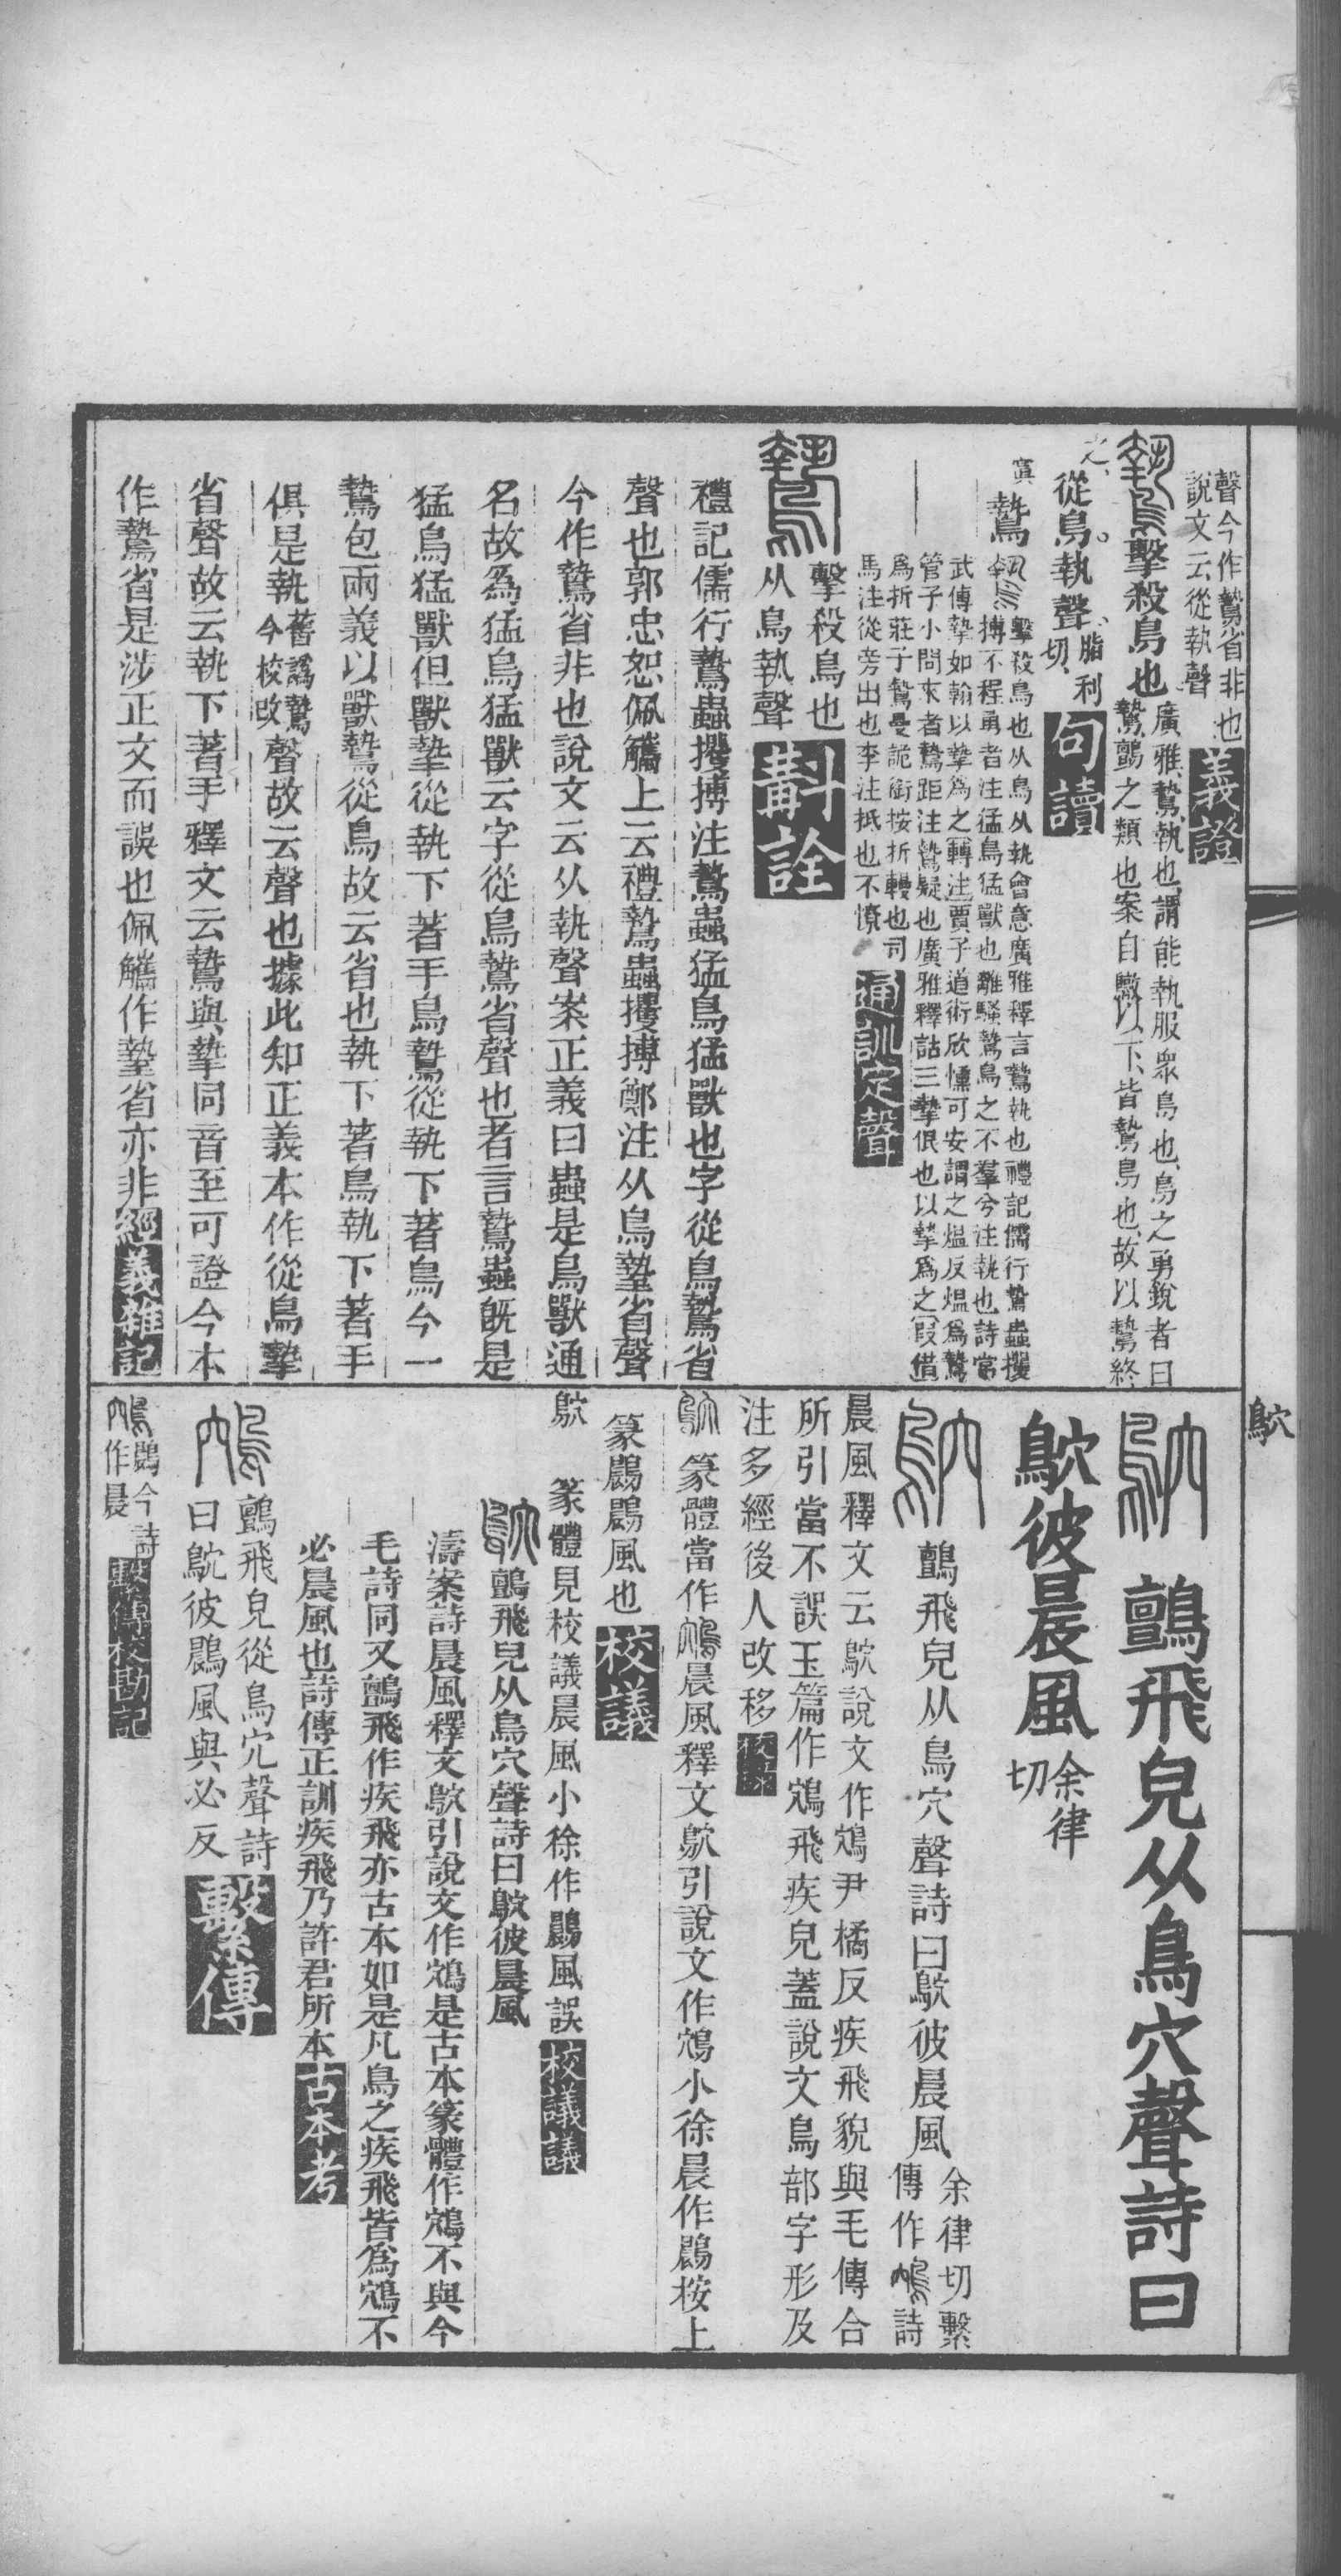 聲今作鷙省非也
說文云從執聲
義證
擊殺鳥也
廣雅鷙執也謂能執服衆鳥也鳥之勇銳者曰
鷙鸇之類也案自鷻以下皆鷙鳥也故以鷙終
之
從鳥執聲
脂利
切
句讀
鷙
擊殺鳥也从鳥从執會意廣雅釋言鷙執也禮記儒行鷙蟲攫
搏不程勇者注猛鳥猛獸也離騷鷙鳥之不羣兮注執也詩常
武傳摯如翰以摯爲之轉注賈子道術欣懽可安謂之熅反熅爲鷙
管子小問來者鷙距注鷙疑也廣雅釋詁三摯很也以摯爲之假借
爲折莊子鷙曼詭銜按折轅也司
馬注從旁出也李注抵也不憭
通訓定聲
擊殺鳥也
从鳥執聲
斠詮
禮記儒行鷙蟲攫搏注鷙蟲猛鳥猛獸也字從鳥鷙省
聲也郭忠恕佩觿上云禮鷙蟲攫搏鄭注从鳥摯省聲
今作鷙省非也說文云从執聲案正義曰蟲是鳥獸通
名故爲猛鳥猛獸云字從鳥鷙省聲也者言鷙蟲旣是
猛鳥猛獸但獸摯從執下著手鳥鷙從執下著鳥今一
鷙包兩義以獸鷙從鳥故云省也執下著鳥執下著手
俱是執
舊譌鷙
今校改
聲故云聲也據此知正義本作從鳥摯
省聲故云執下著手釋文云鷙與摯同音至可證今本
作鷙省是涉正文而誤也佩觿作摯省亦非
經義雜記
鴥
鸇飛皃从鳥穴聲詩曰
鴥彼晨風
余律
切
鸇飛皃从鳥穴聲詩曰鴥彼晨風
余律切繫
傳作鴪詩
晨風釋文云鴥說文作鴪尹橘反疾飛貌與毛傳合
所引當不誤玉篇作鴪飛疾皃蓋說文鳥部字形及
注多經後人改移
校錄
鴥篆體當作鴪晨風釋文鴥引說文作鴪小徐晨作鷐按上
篆鷐鷐風也
校議
鴥
篆體見校議晨風小徐作鷐風誤
校議議
鸇飛皃从鳥穴聲詩曰鴥彼晨風
濤案詩晨風釋文鴥引說文作鴪是古本篆體作鴪不與今
毛詩同又鸇飛作疾飛亦古本如是凡鳥之疾飛皆爲鴪不
必晨風也詩傳正訓疾飛乃許君所本
古本考
鸇飛皃從鳥穴聲詩
曰鴥彼鷐風與必反
繫傳
鷐今詩
作晨
繫傳校勘記